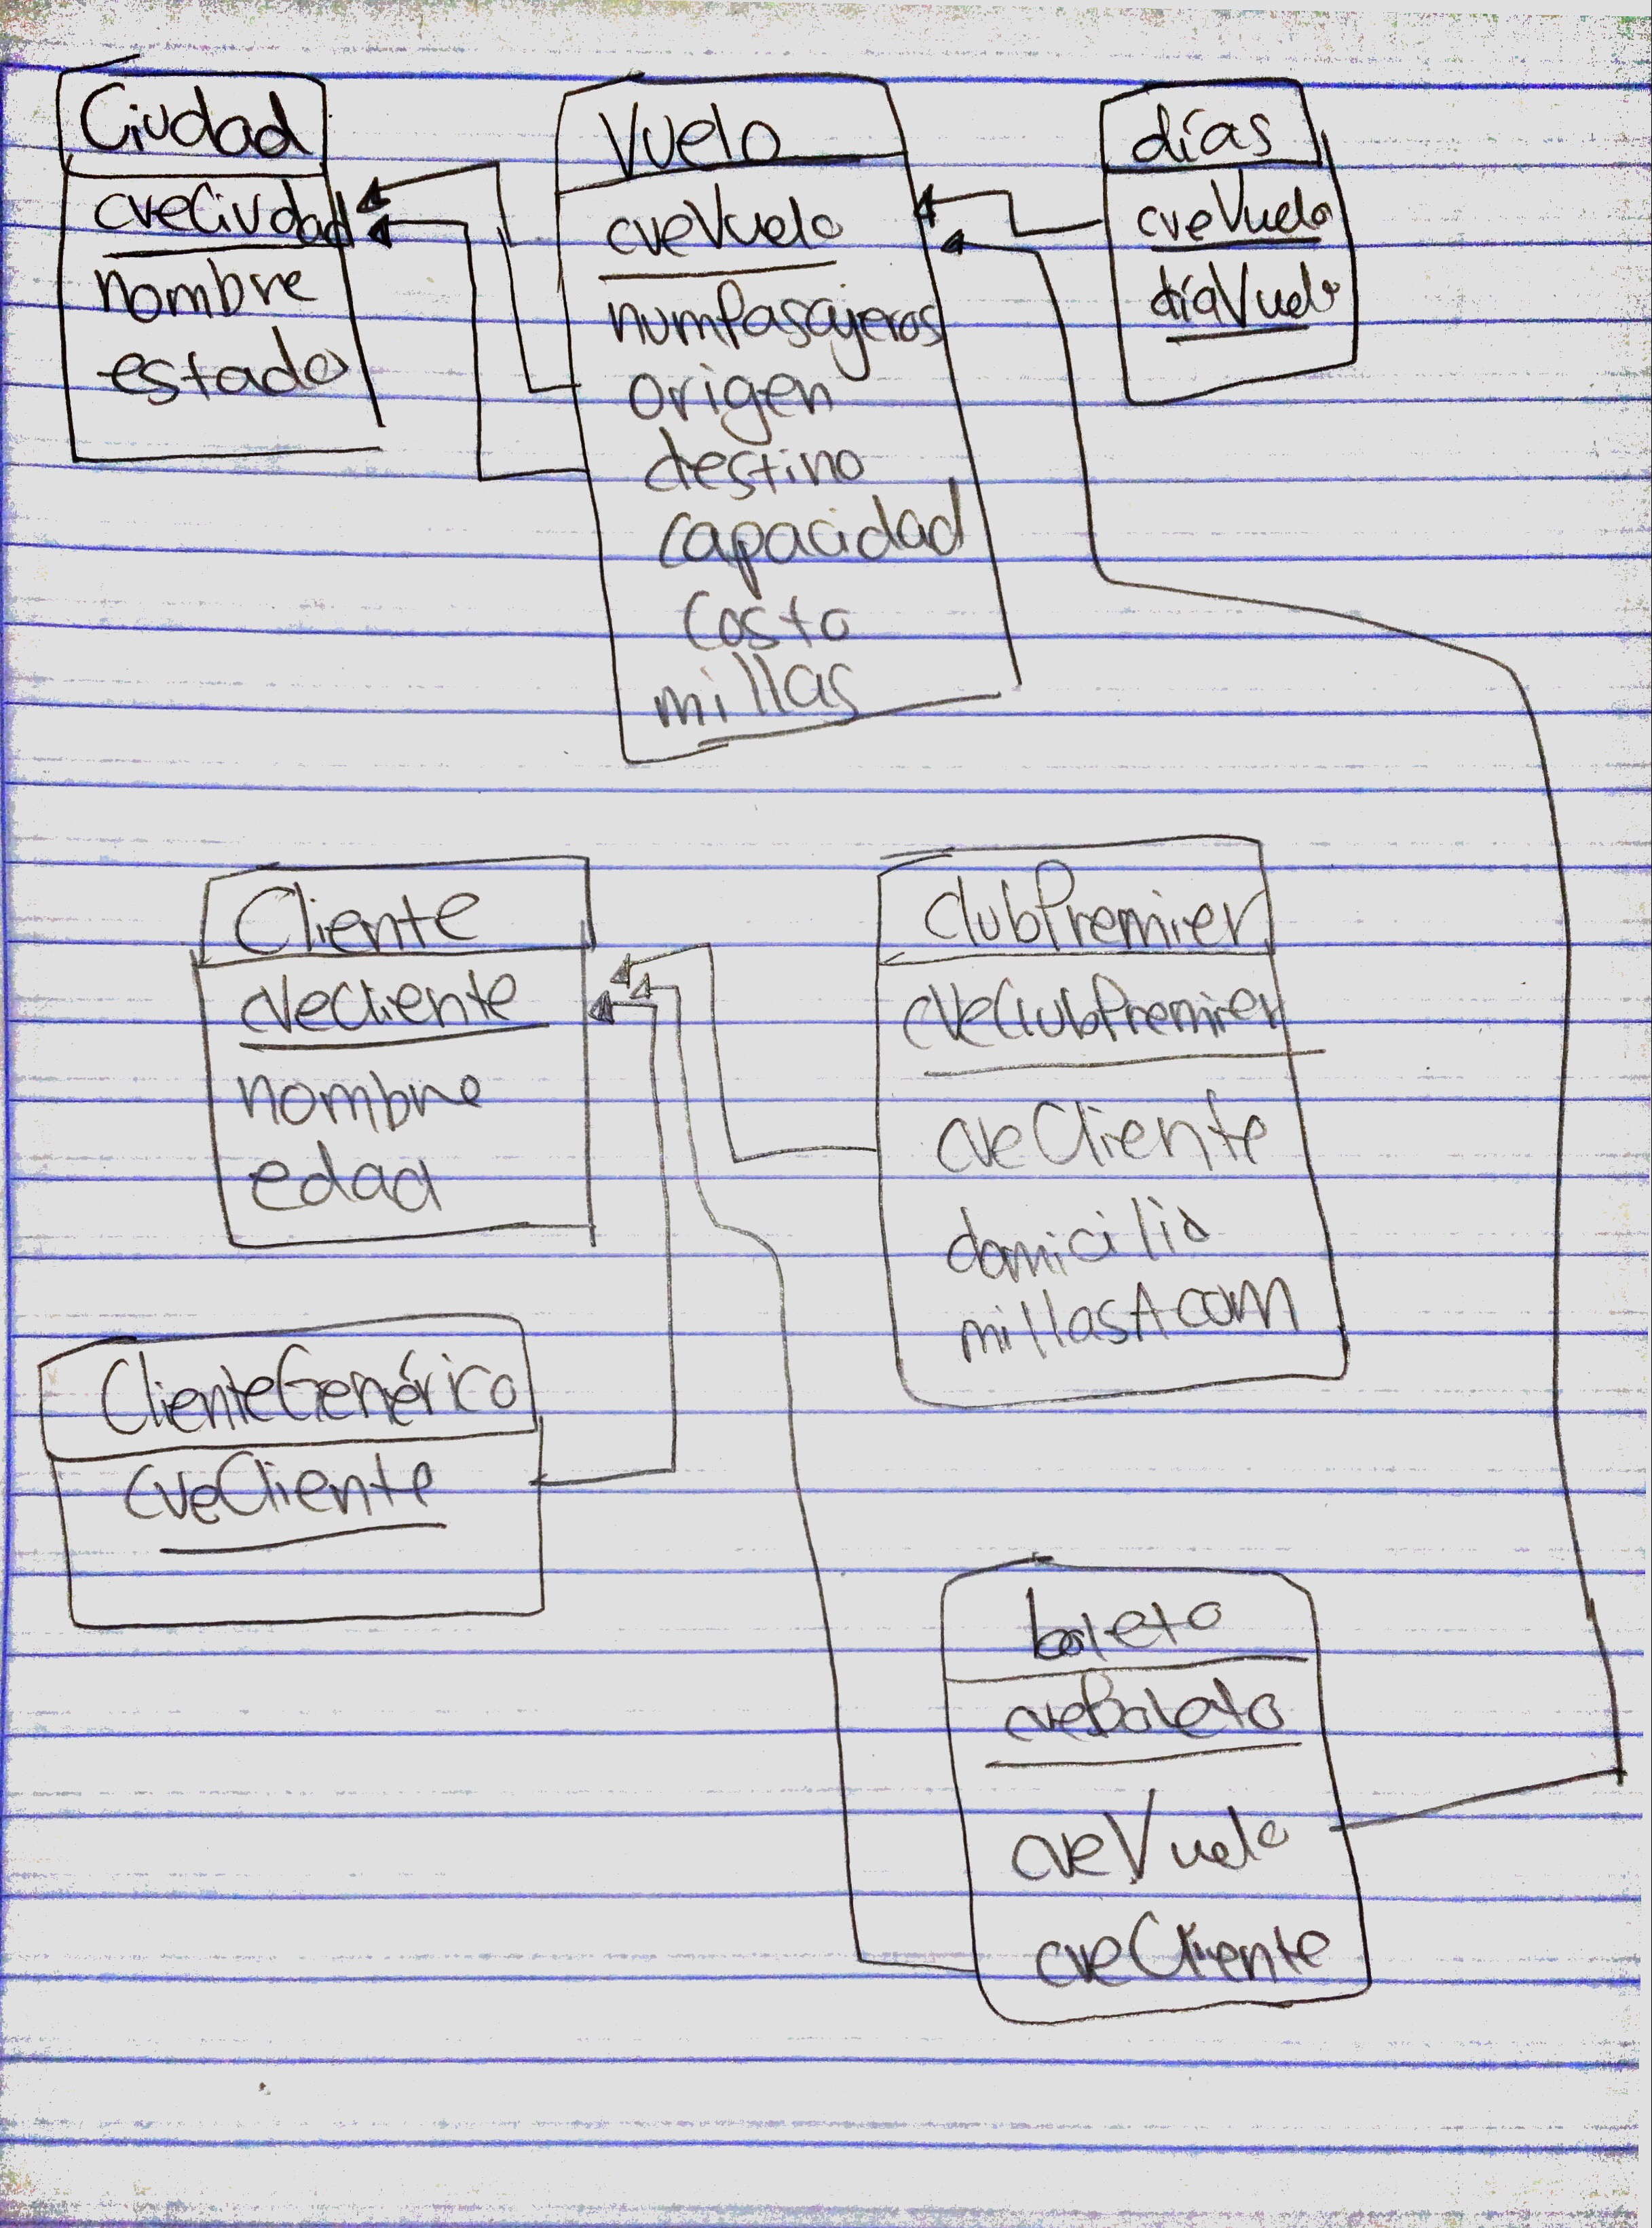 Ciudad
cveCiudad
nombre
estado
Vuelo
cveVuelo
numPasajeros
origen
destino
capacidad
costo
millas
días
cveVuelo
díaVuelo
Cliente
cveCliente
nombre
edad
ClubPremier
cveClubPremier
cveCliente
domicilio
millasAcom
ClienteGenérico
cveCliente
boleto
cveBoleto
cveVuelo
cveCliente